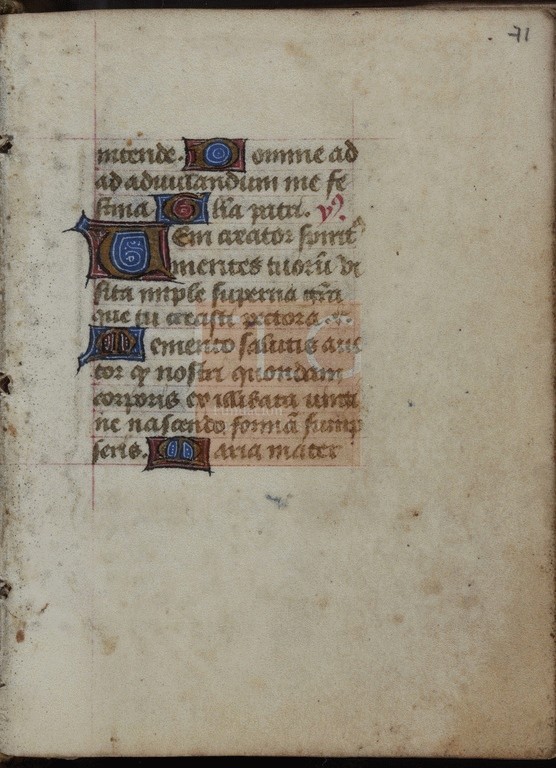 71
intende. Domine ad
ad adiuuandum me fe
stina Glia patri. ỹ
Veni creator spirit⁹
mentes tuorũ vi
sita imple superna gr̃a
que tu creasti pectora
Memento salutis auc
tor qͥ nostri quondam
corporis ex illibata uirgi
ne nascendo formã sump
seris. Maria mater